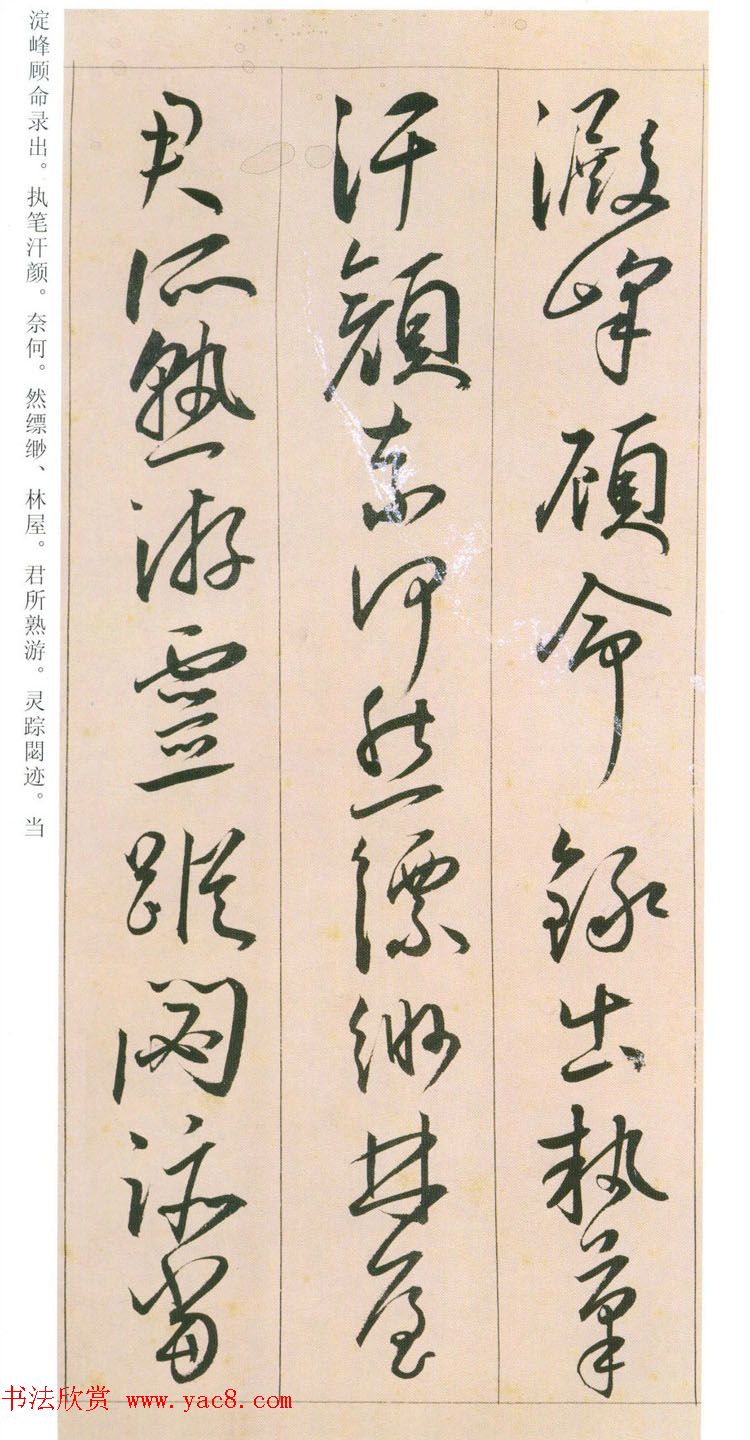 澱峰顧命錄出執筆
汗顏奈何然縹緲林屋
君所熟游靈蹤閟迹當
淀峰顾命录出。执笔汗颜。奈何。然缥缈、林屋。君所熟游。灵踪閟迹。当
书法欣赏 www.yac8.com